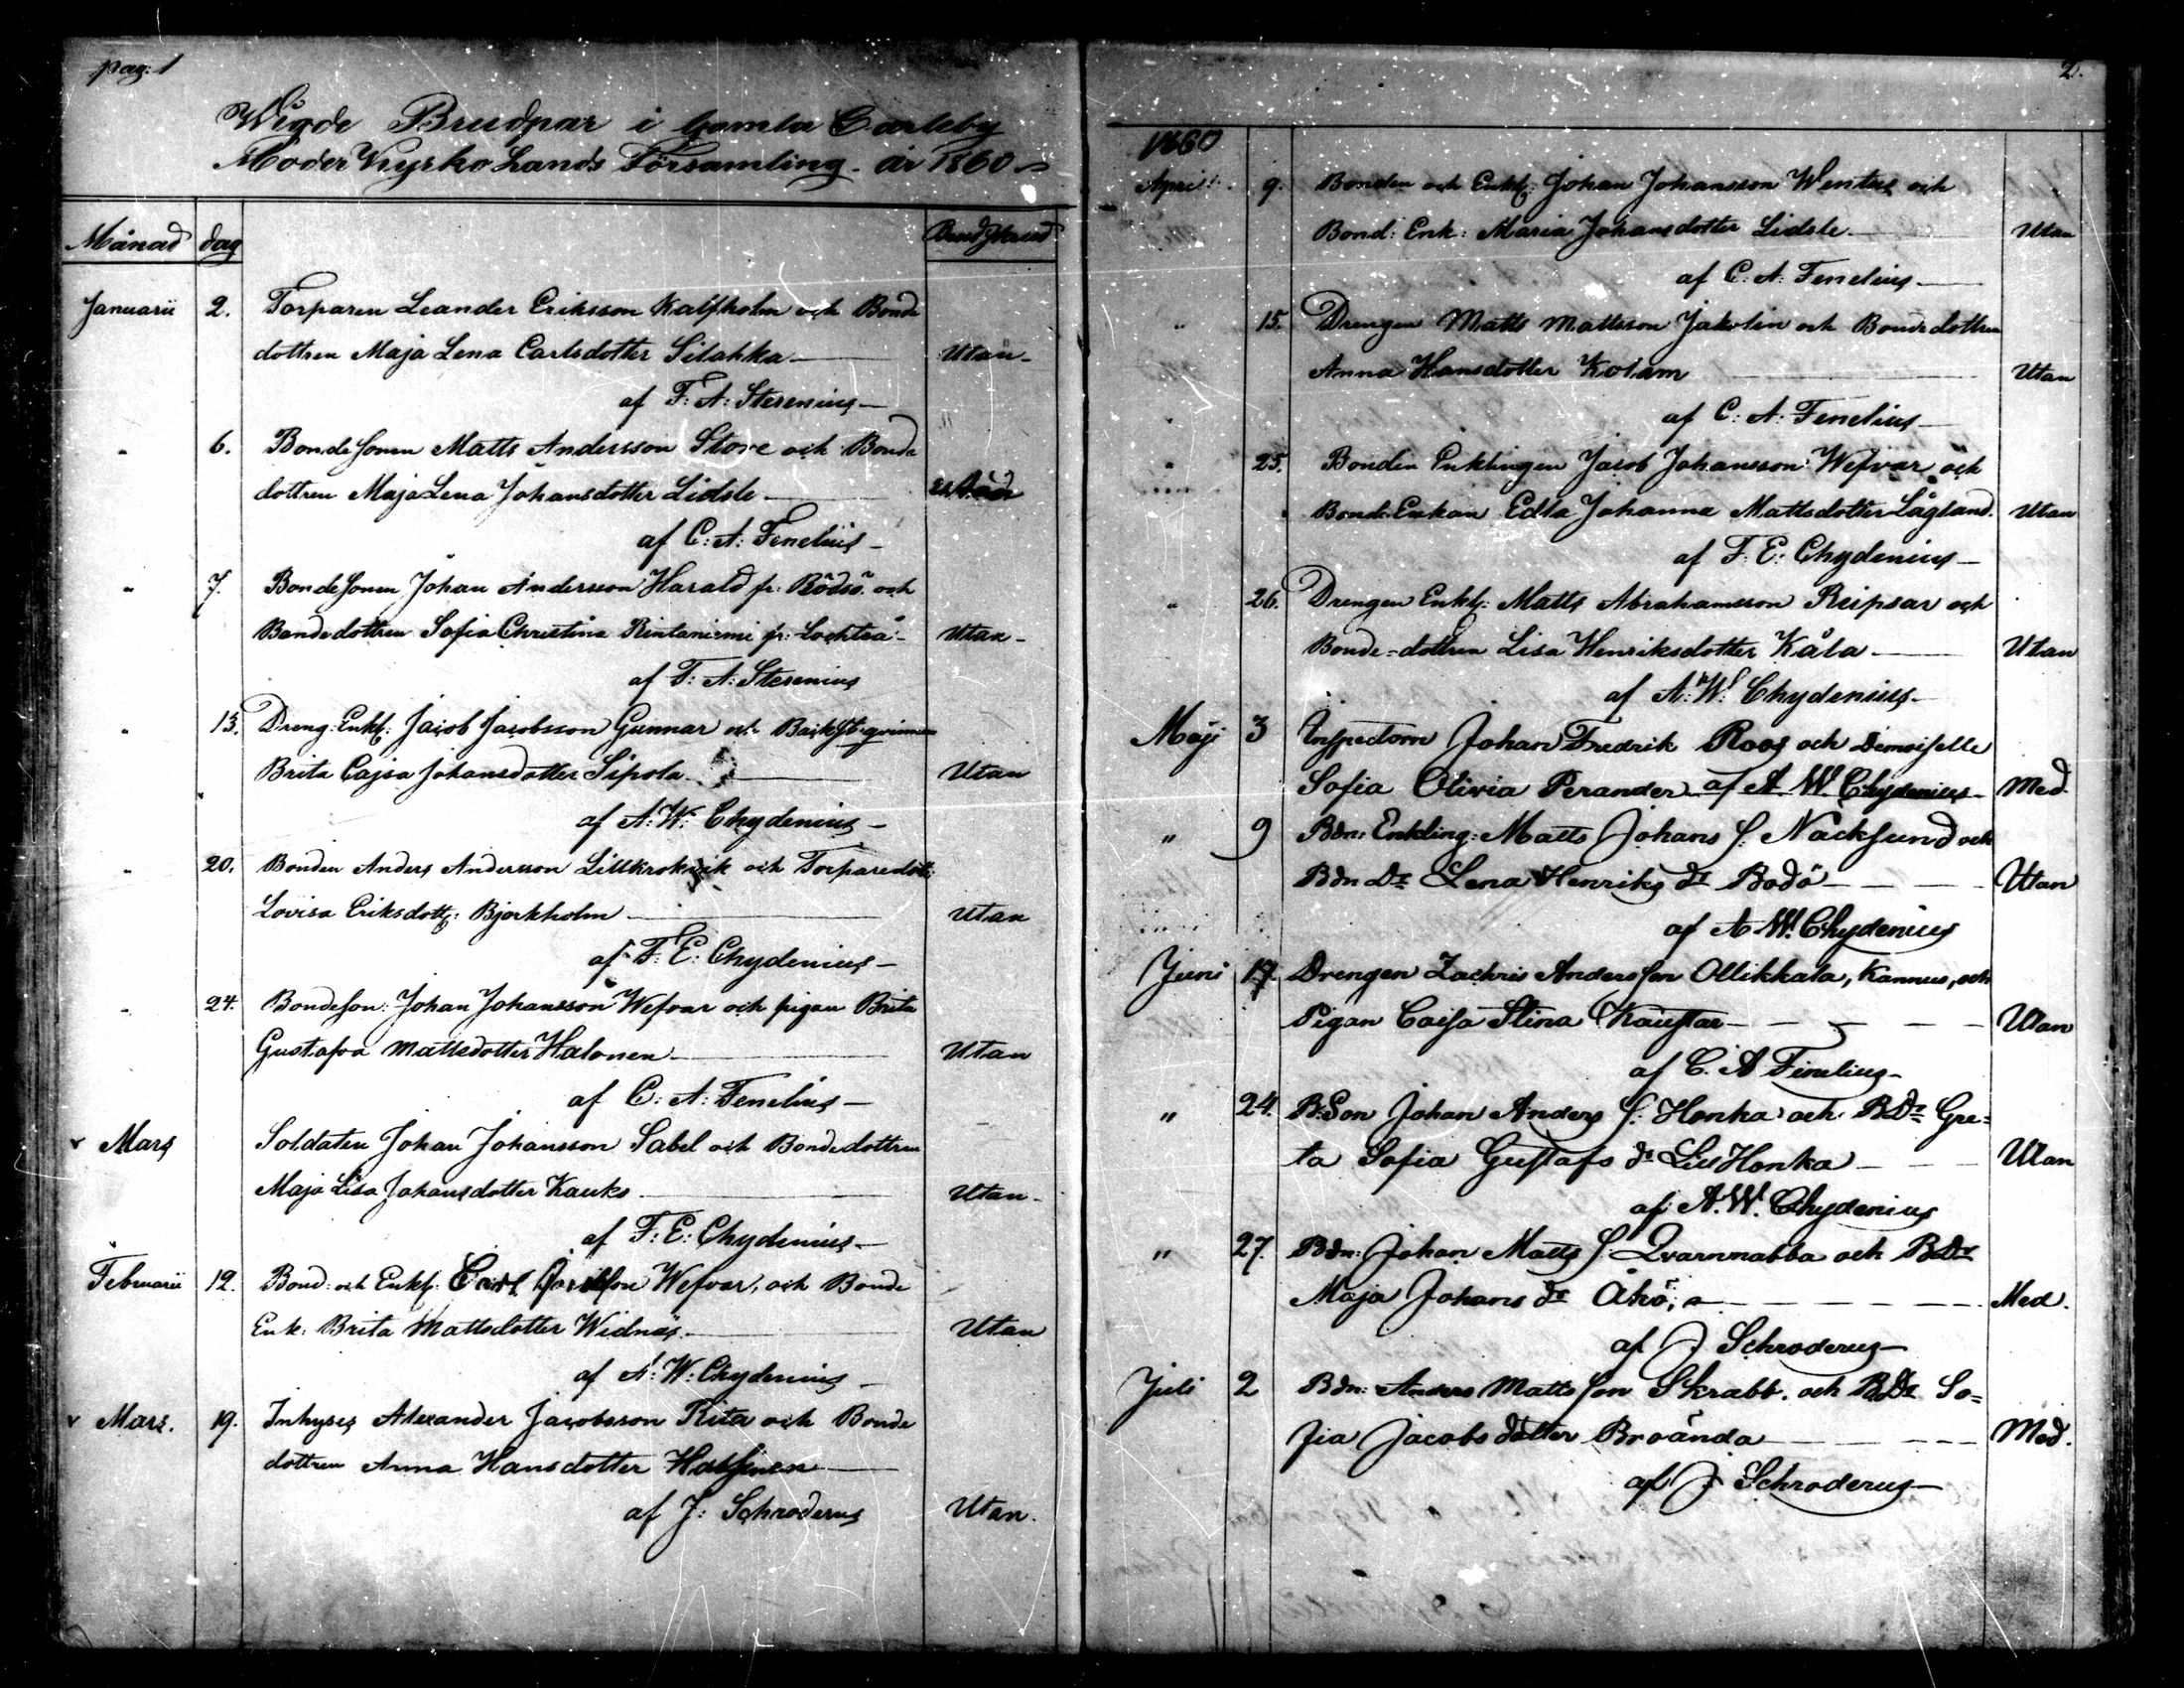 pag: 1
Wigde Brudpar i Gamla Carleby
Moder Kyrko Lands Församling år 1860
Månad dag
Januarii 2. Torparen Leander Eriksson Kalfholm och Bonde
dottren Maja Lena Carlsdotter Silahka Utan
af F: A: Stenius
" 6. Bondesonen Matts Andersson Store och Bonde
dottren Maja Lena Johansdotter Lidsle
af C: A: Fenelius
" 7. Bondesonen Johan Andersson Harald fr: Rödsö och
Bondedottren Sofia Christina Rintaniemi fr: Lochteå Utan
af F: A: Stenius
" 13. Dreng: Enkl: Jacob Jacobsson Gunnar och
Brita Cajsa Johansdotter Sipola Utan
af A: W: Chydenius
" 20. Bonden Anders Andersson Lillkrokvik och Torparedott:
Lovisa Eriksdott: Bjorkholm Utan
af F: E: Chydenius
" 24. Bondeson: Johan Johansson Wefvar och pigan Brita
Gustafva Mattsdotter Halonen Utan
af C: A: Fenelius
Mars Soldaten Johan Johansson Sabel och Bondedottren
Maja Lisa Johansdotter Kauko Utan
af F: E: Chydenius
Februarii 12. Bond: och Enkl: Carl Wefvar, och Bonde
Enk: Brita Mattsdotter Widnäs Utan
af A: W: Chydenius
Mars. 19. Inhyses Alexander Jacobsson Rita och Bonde
dottren Anna Hansdotter
af J: Schroderus Utan.
2.
1860
April 9. Bonden och Enkl: Johan Johansson Wentus och
Bond: Enk: Maria Johansdotter Lidsle Utan
af C: A: Fenelius
" 15. Drengen Matts Mattsson Jakolin och Bondedottren
Anna Hansdotter Kotam Utan
af C: A: Fenelius
" 25. Bonden Enklingen Jacob Johansson Wefvar och
Bonde Enkan Edla Johanna Mattsdotter Lågland. Utan
af F: E: Chydenius
" 26. Drengen Enkl: Matts Abrahamsson Reipsar och
Bonde-dottren Lisa Henriksdotter Kåla Utan
af A: W: Chydenius
Maji 3 Inspectorn Johan Fredrik Roos och Demoiselle
Sofia Olivia Perander af A W Chydenius Med
" 9 Bdn: Enkling: Matts Johans S: Nacksund och
Bdn Dr Lena Henriks dr Bodö Utan
af A W. Chydenius
Juni 17. Drengen Zachris Andersson Ollikkala, Kannus, och
Pigan Caisa Stina Kaustar Utan
af C. A Fenelius
" 24. B: Son Johan Anders S: Honka och B.Dr Gre=
ta Sofia Gustafs dr Lill Honka Utan
af A. W. Chydenius
" 27. Bdn: Johan Matts S: Qvarnnabba och B.Dr
Maja Johans dr Åhö, Med.
af J Schroderus
Juli 2 Bdn: Anders Matts son Skrabb. och B.Dr So=
fia Jacobs dotter Broända Med.
af J Schroderus